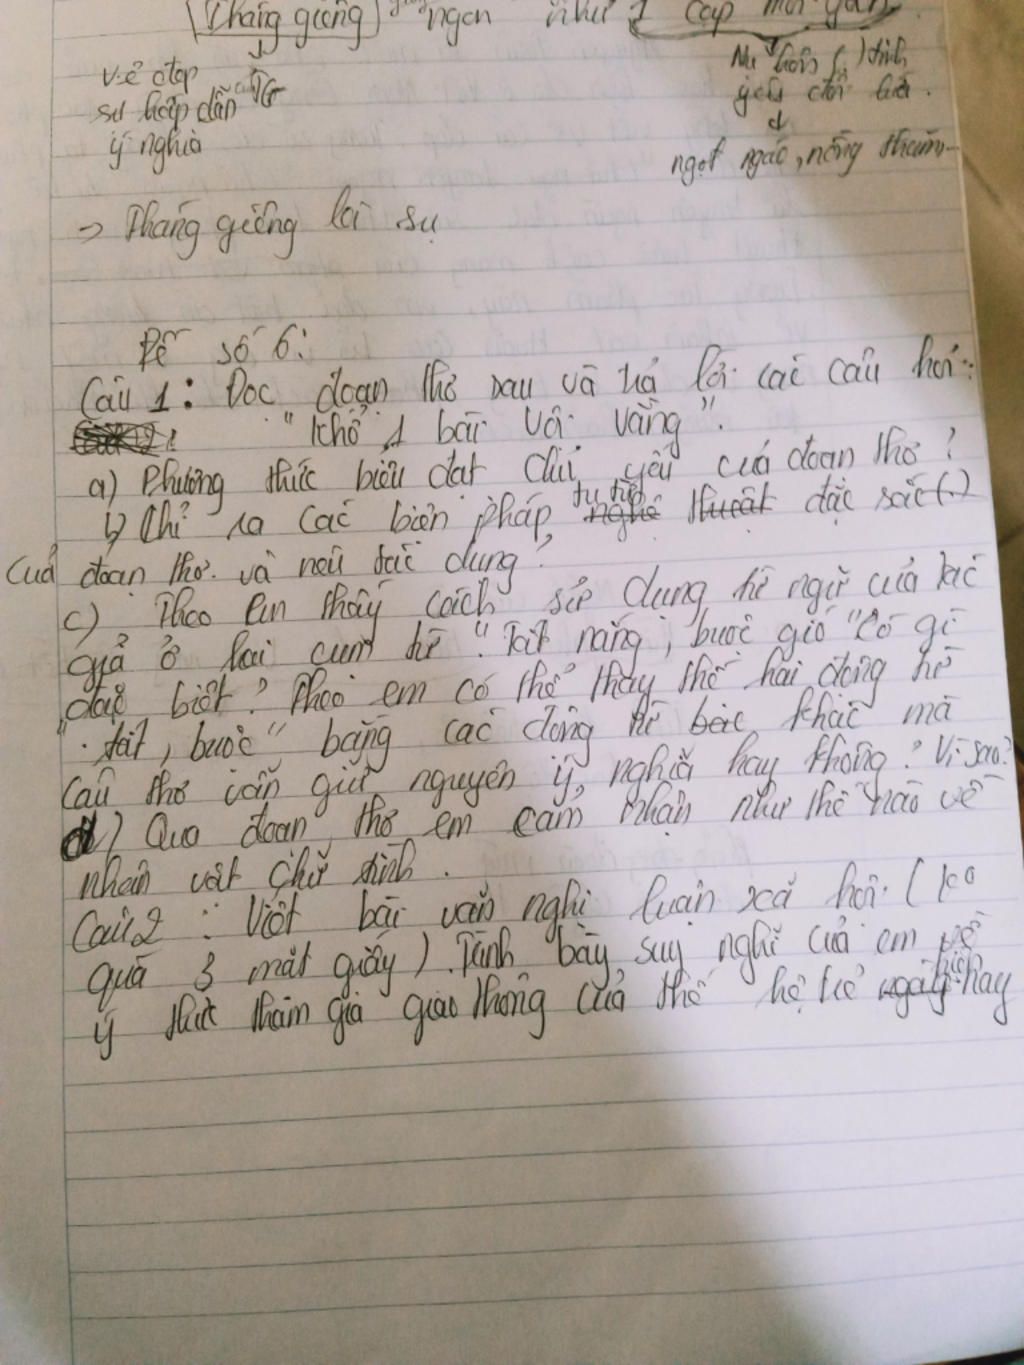 Tháng giêng ngon như 1 cặp môi gần
vẻ đẹp
sự hấp dẫn
ý nghĩa
Nụ hôn ( ) tình
yêu đôi lứa.
ngọt ngào, nồng thắm
-> Tháng giêng là sự
Đề số 6:
Câu 1: Đọc đoạn thơ sau và trả lời các câu hỏi:
"Khổ 1 bài Vội vàng".
a) Phương thức biểu đạt chủ yếu của đoạn thơ?
b) Chỉ ra các biện pháp tu từ nghệ thuật đặc sắc (.)
của đoạn thơ. và nêu tác dụng?
c) Theo em thấy cách sử dụng từ ngữ của tác
giả ở hai cụm từ "Tắt nắng, buộc gió" có gì
đặc biệt? Theo em có thể thay thế hai động từ
"tắt, buộc" bằng các động từ khác mà
câu thơ vẫn giữ nguyên ý nghĩa hay không? Vì sao?
d) Qua đoạn thơ em cảm nhận như thế nào về
nhân vật chữ tình.
Câu 2: Viết bài văn nghị luận xã hội (ko
quá 3 mặt giấy). Trình bày suy nghĩ của em về
ý thức tham gia giao thông của thế hệ trẻ ngày hiện nay